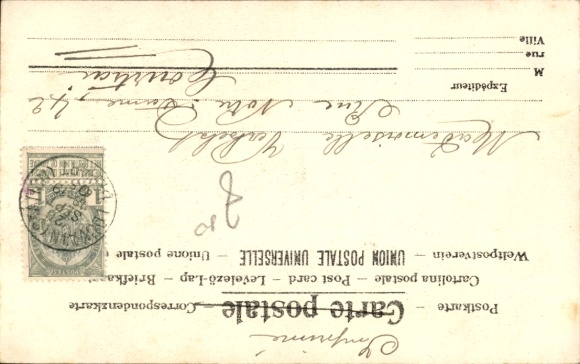 Imprimé
Carte postale
Postkarte – Correspondenzkarte
Cartolina postale – Post card – Levelező-Lap – Briefkaart
Weltpostverein – UNION POSTALE UNIVERSELLE – Unione postale
Mademoiselle
Rue Notre Dame, 42
Courtrai
Expéditeur
M
rue
Ville